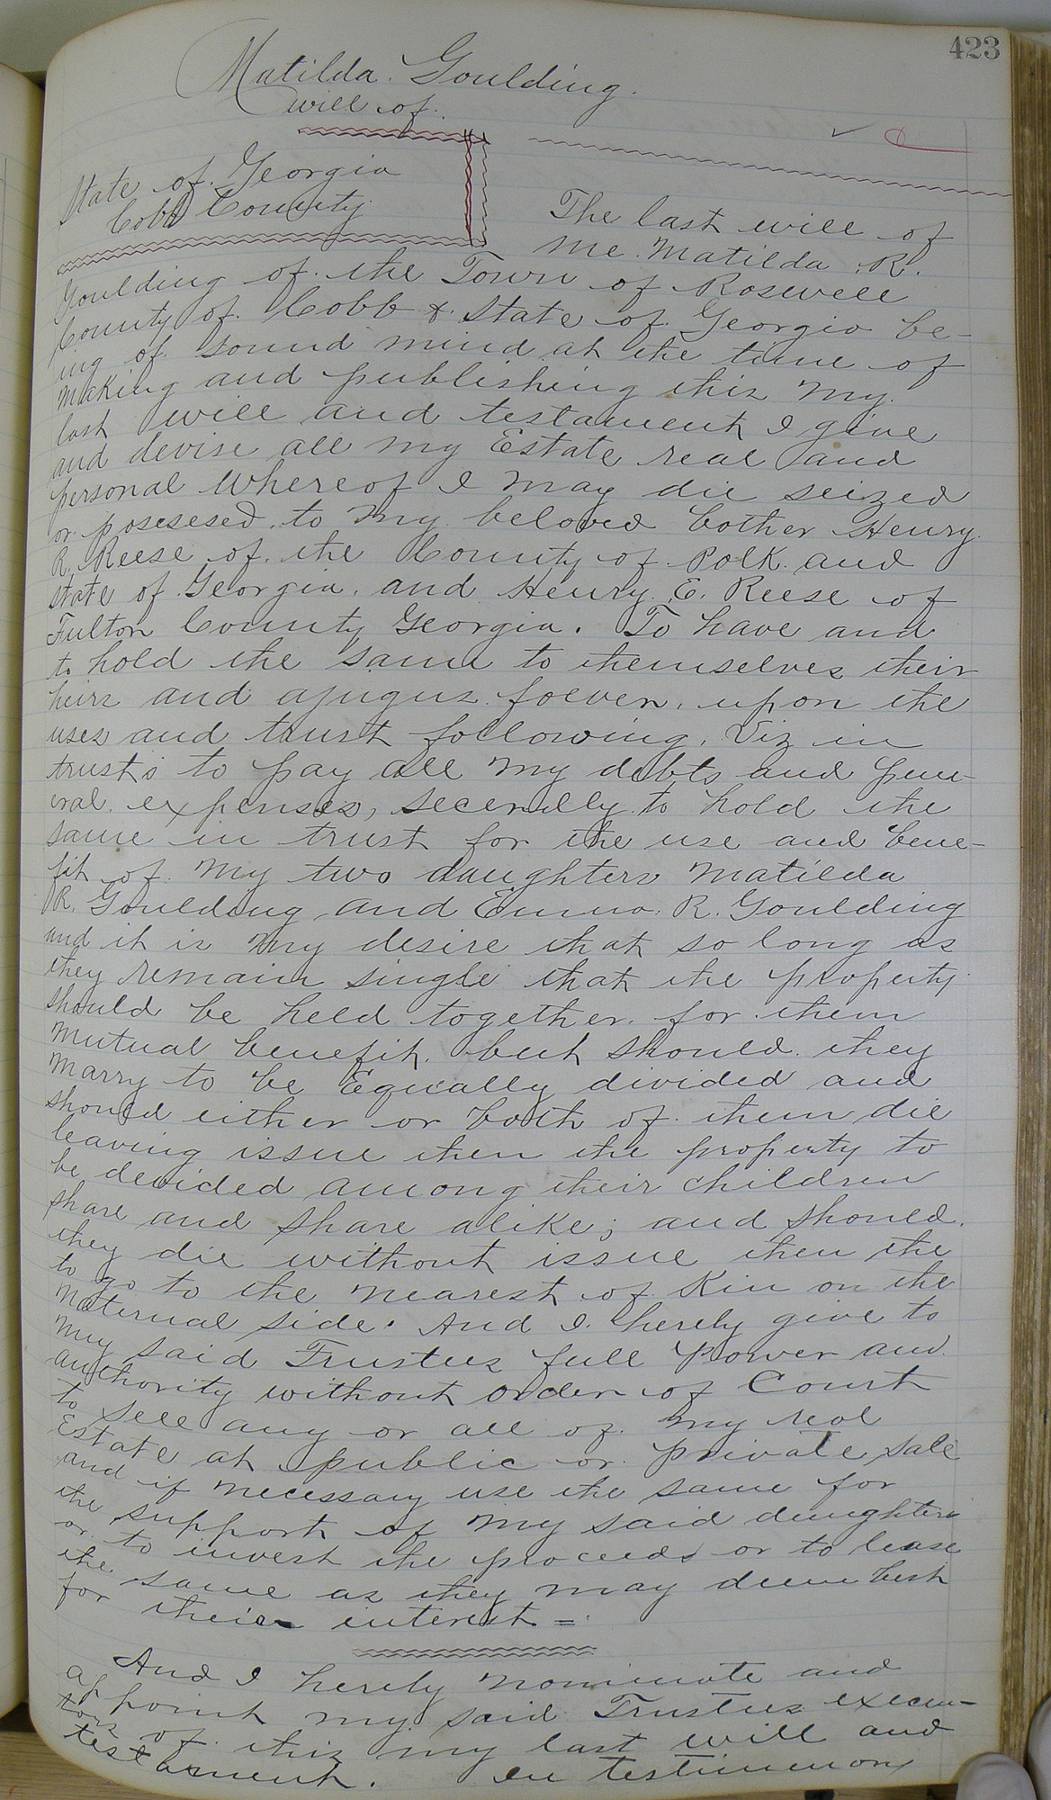 423
Matilda. Goulding.
will of.
State of. Georgia
Cobb County.
The last will of
me. Matilda. R.
Goulding of. the Town of Roswell
County of. Cobb & State of. Georgia be-
ing of sound mind at the time of
making and publishing this my.
last will and testament I give
and devise all my Estate real and
personal Whereof I may die seized
or possesed. to my beloved bother Henry.
R. Reese of. the County of Polk. and
state of Georgia. and Henry E. Reese of
Fulton County Georgia. To have and
to hold the same to themselves their
heirs and forever. upon the
uses and trust following, Viz in
trusts to pay all my debts and fun-
eral expenses, secendly to hold the
same in trust for the use and bene-
fit of. My two daughters Matilda
R. Goulding and Emma. R. Goulding
and it is my desire that so long as
they remain single that the property
should be held together. for them
mutual benefit. but should. they
Marry to be Equally divided and
should either or both of. them die
leaving issue then the property to
be devided among their children
share and share alike; and should.
they die without issue then the
to go to the nearest of Kin on the
maternal side. And I. hereby give to
my said Trustees full Power and
authority without order of Court
to sell any or all of. my real
Estate at public or private sale
and if necessary use the same for
the support of my said daughters
or. to invest the proceeds or to lease
the same as they may deem best
for their interest =
And I hereby nominate and
appoint my said Trustees execu-
tors of. this my last will and
testament. In testimony